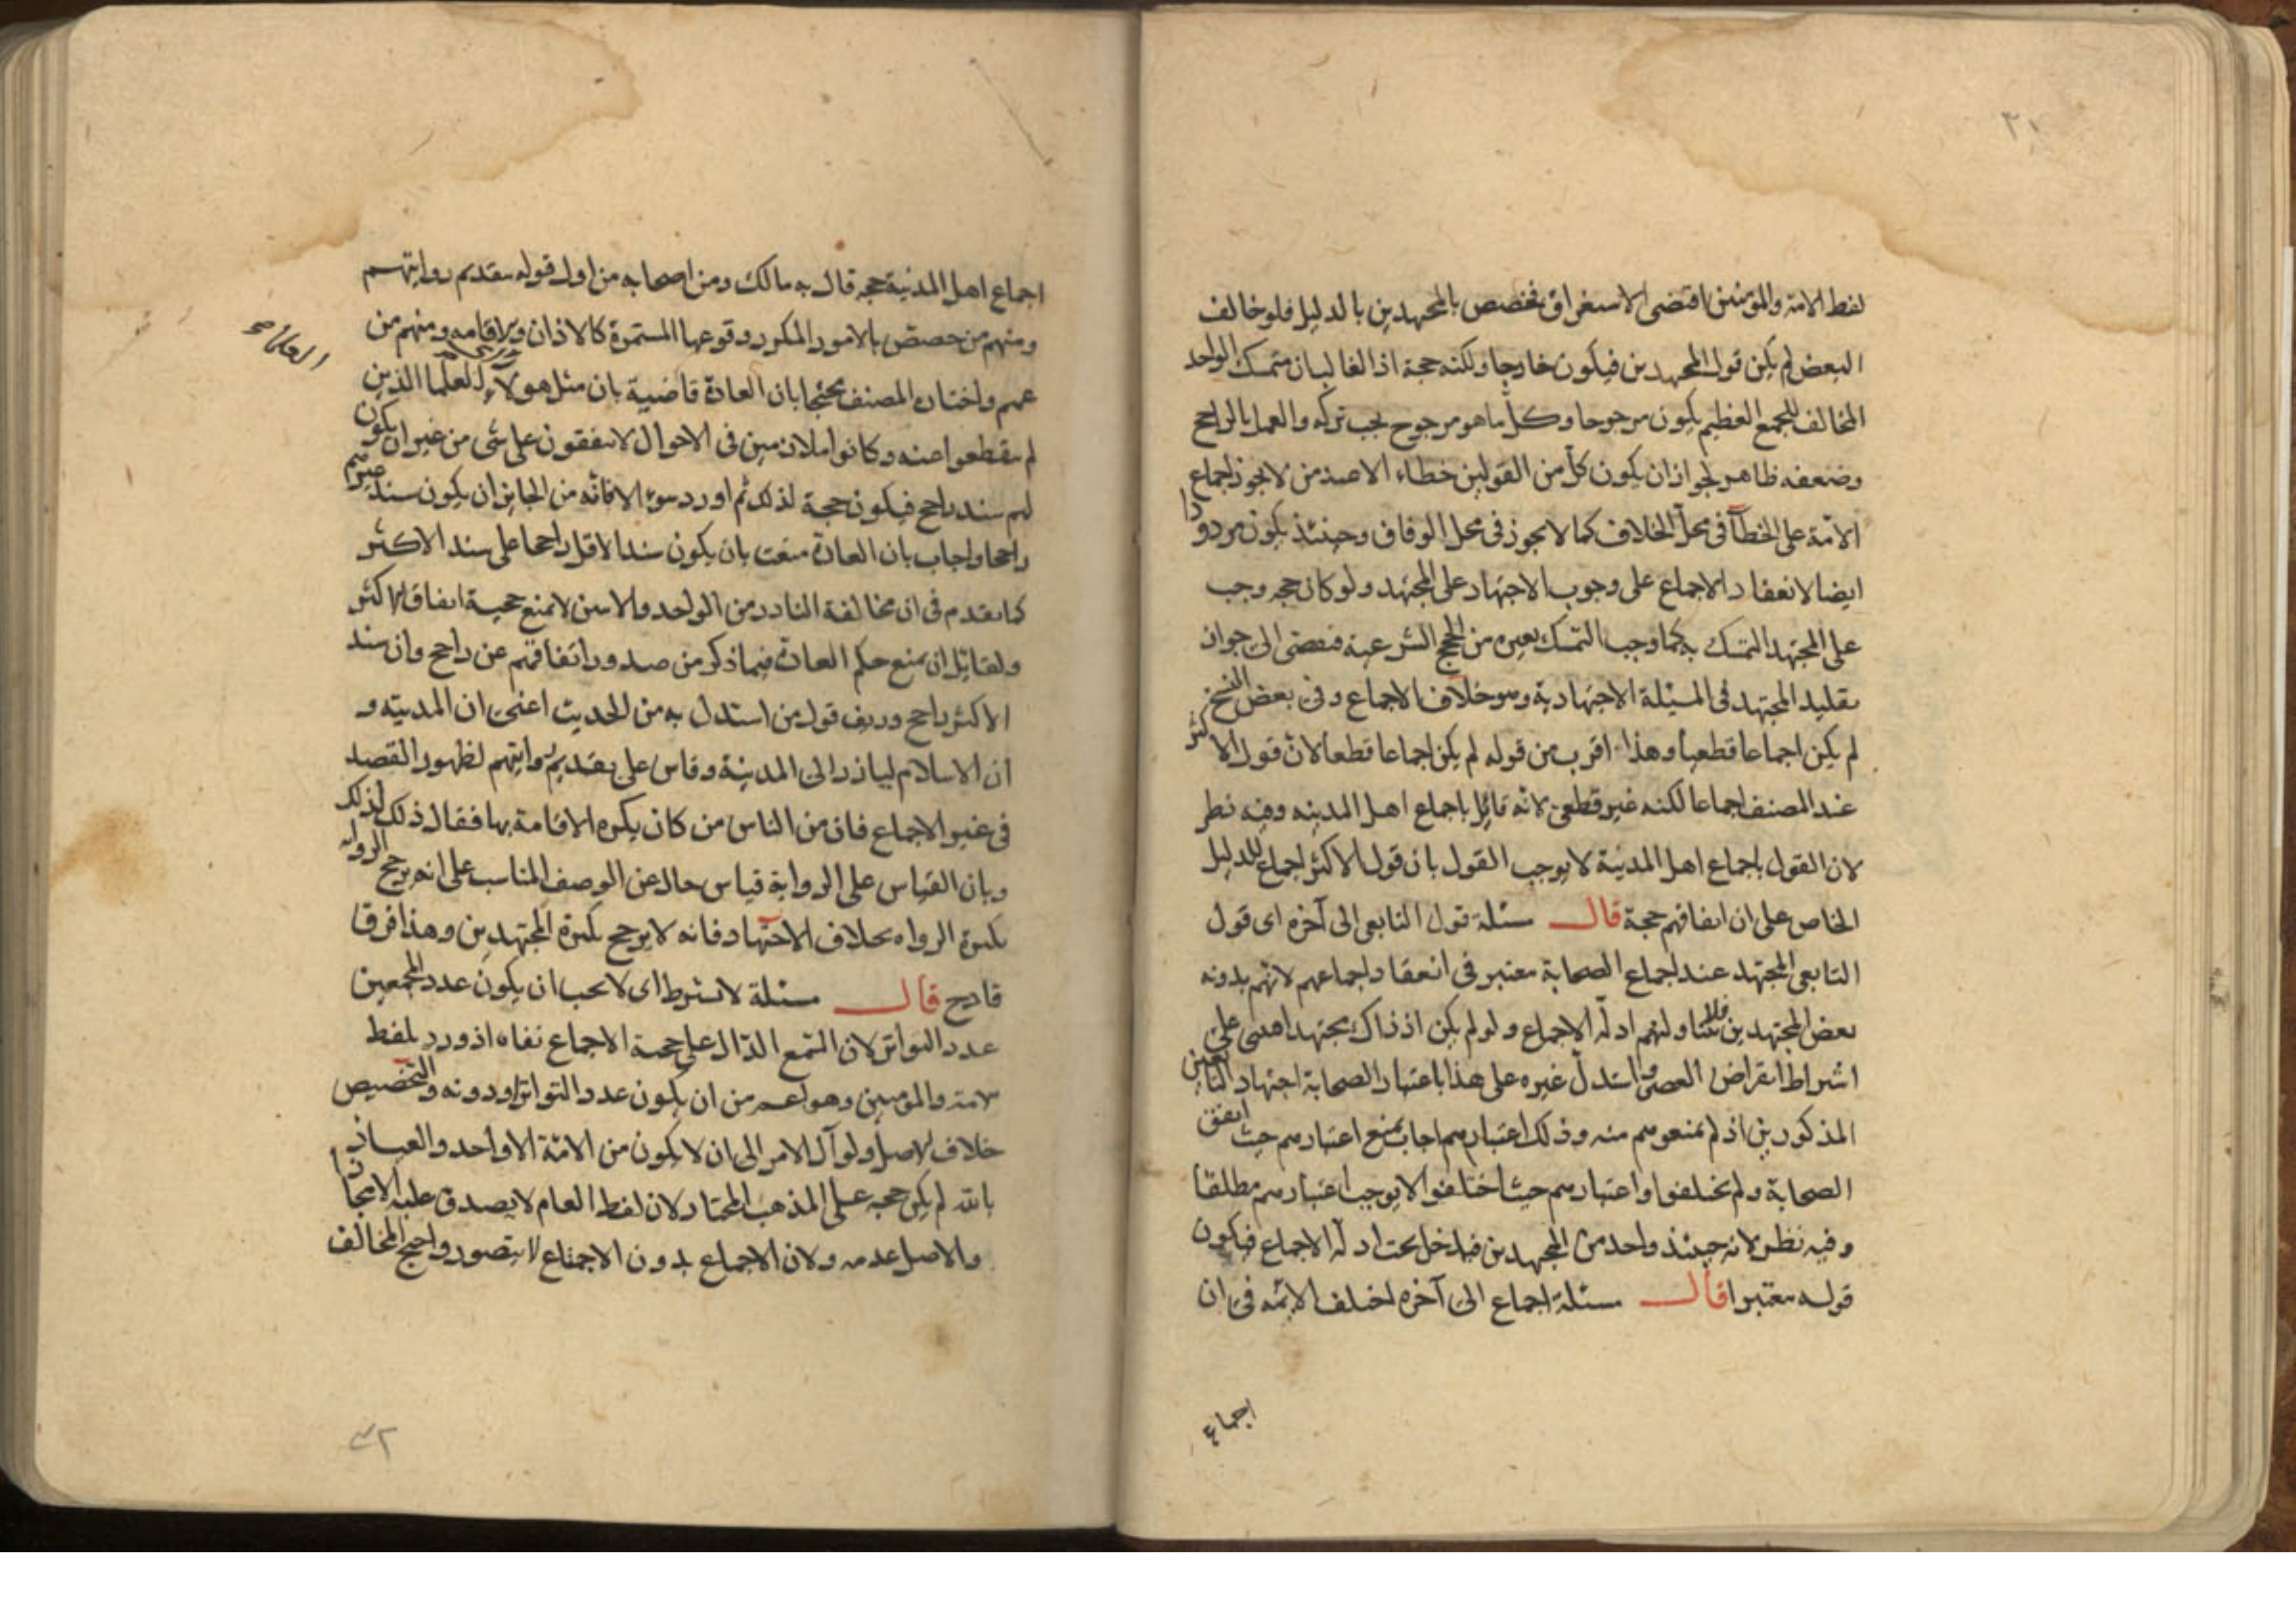 ٣١
لفظ الامة والمؤمنين اقتضى الاستغراق فخصص بالمجتهدين بالدليل فلو خالف
البعض لم يكن قول المجتهدين فيكون خارجا ولكنه حجة اذ الغالب ان متمسك الواحد
المخالف للجمع العظيم يكون مرجوحا وكل ما هو مرجوح يجب تركه والعمل بالراجح
وضعفه ظاهر لجواز ان يكون كل من القولين خطاء الا عند من لا يجوز اجماع
الامة على الخطأ في محل الخلاف كما لا يجوز في محل الوفاق وحينئذ يكون مردودا
ايضا لانعقاد الاجماع على وجوب الاجتهاد على المجتهد ولو كان حجة وجب
على المجتهد التمسك به كما وجب التمسك بغيره من الحجج الشرعية فيفضى الى جواز
تقليد المجتهد في المسئلة الاجتهادية وهو خلاف الاجماع وفي بعض النسخ
لم يكن اجماعا قطعيا وهذا اقرب من قوله لم يكن اجماعا قطعا لان قول الاكثر
عند المصنف اجماعا لكنه غير قطعي لانه قائل باجماع اهل المدينه وفيه نظر
لان القول باجماع اهل المدينة لا يوجب القول بان قول الاكثر اجماع للدليل
الخاص على ان اتفاقهم حجة قال مسئلة قول التابعي الى آخره اى قول
التابعي المجتهد عند اجماع الصحابة معتبر في انعقاد اجماعهم لانهم بدونه
بعض المجتهدين فلا تتناولهم ادلة الاجماع ولو لم يكن اذ ذاك مجتهدا فبني على
اشتراط انقراض العصر واستدل غيره على هذا باعتبار الصحابة اجتهاد التابعين
المذكورين اذ لم يمنعوهم منه وذلك اعتبارهم اجاب بمنع اعتبارهم حيث اتفق
الصحابة ولم يختلفوا واعتبارهم حيث اختلفوا لا يوجب اعتبارهم مطلقا
وفيه نظر لانه حينئذ واحد من المجتهدين فيدخل تحت ادلة الاجماع فيكون
قوله معتبرا قال مسئلة اجماع الى آخره اختلف الائمه في ان
اجماع
اجماع اهل المدينة حجة قال به مالك ومن اصحابه من اول قوله بتقديم روايتهم
ومنهم من خصص بالامور المكرر وقوعها المستمرة كالاذان والاقامه ومنهم من
عمم واختاره المصنف محتجا بان العادة قاضية بان مثل هولاء العلما الذين
لم ينقطعوا عنه وكانوا ملازمين في الاحوال لا يتفقون على شى من غير ان يكون
لهم سند راجح فيكون حجة لذلك ثم اورد سوء الا فانه من الجايز ان يكون سند غيرهم
راجحا واجاب بان العادة منعت بان يكون سند الاقل راجحا على سند الاكثر
كما تقدم في ان مخالفة النادر من الواحد والاثنين لا تمنع حجية اتفاق الاكثر
ولقائل ان يمنع حكم العادة فيما ذكر من صدور اتفاقهم عن راجح وان سند
الاكثر راجح وزيف قول من استدل به من الحديث اعنى ان المدينه و
ان الاسلام ليازر الى المدينة وقاس على تقديم روايتهم لظهور القصد
في غير الاجماع فان من الناس من كان يكره الاقامة بها فقال ذلك لذلك
وبان القياس على الرواية قياس خال عن الوصف المناسب على انه يرجح الرواية
بكثرة الرواه بخلاف الاجتهاد فانه لا يرجح بكثرة المجتهدين وهذا فرق
قادح قال مسئلة لا يشترط اى لا يجب ان يكون عدد المجمعين
عدد التواتر لان السمع الدال على حجية الاجماع نفاه اذ ورد بلفظ
الامة والمومنين وهو اعم من ان يكون عدد التواتر او دونه والتخصيص
خلاف الاصل ولو آل الامر الى ان لا يكون من الامة الا واحد والعياذ
بالله لم يكن حجه على المذهب المختار لان لفظ العام لا يصدق عليه الا مجازا
والاصل عدمه ولان الاجماع بدون الاجتماع لا يتصور واحتج المخالف
٣٢